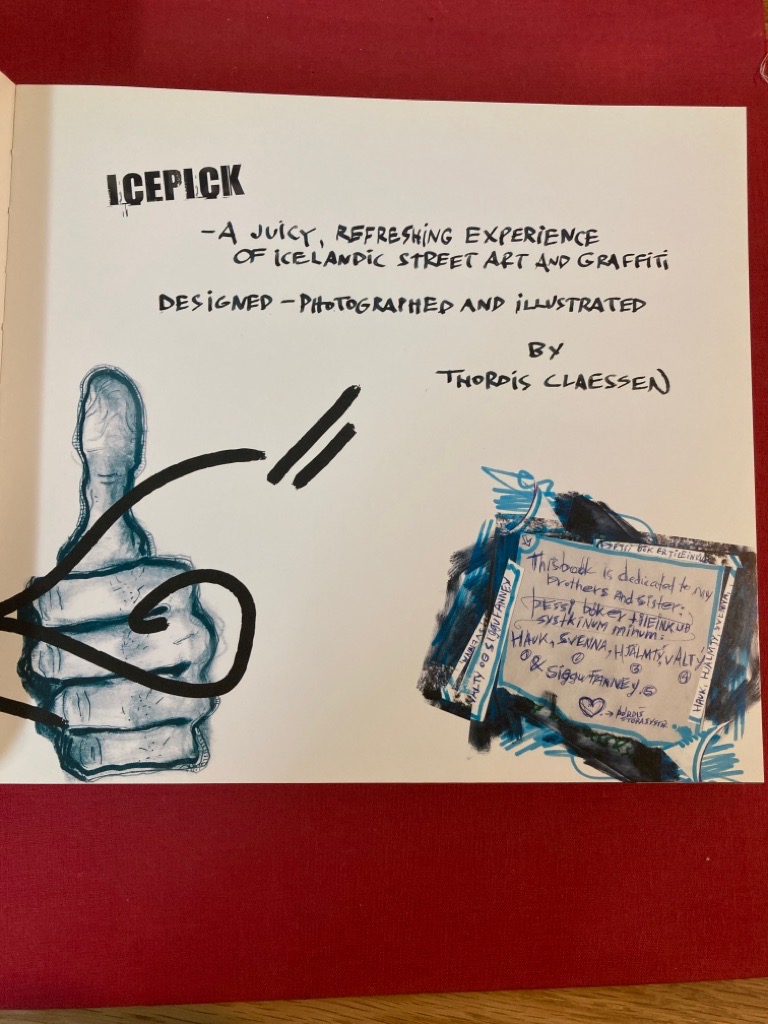 ICEPICK
-A JUICY, REFRESHING EXPERIENCE
OF ICELANDIC STREET ART AND GRAFFITI
DESIGNED - PHOTOGRAPHED AND ILLUSTRATED
BY
THORDIS CLAESSEN
This book is dedicated to my
brothers and sister:
þessi bók er tileinkuð
systkinum mínum:
HAUK, SVENNA, HJÁLMTÝ, VALTÝ
① ② ③ ④
& Siggu FANNEY. ⑤
ÞÓRDÍS
STÓRASYSTIR
ÞESSI BÓK ER TILEINKUÐ
HAUK, HJÁLMTÝ, SVENNA,
VALTÝ OG SIGGU FANNEY